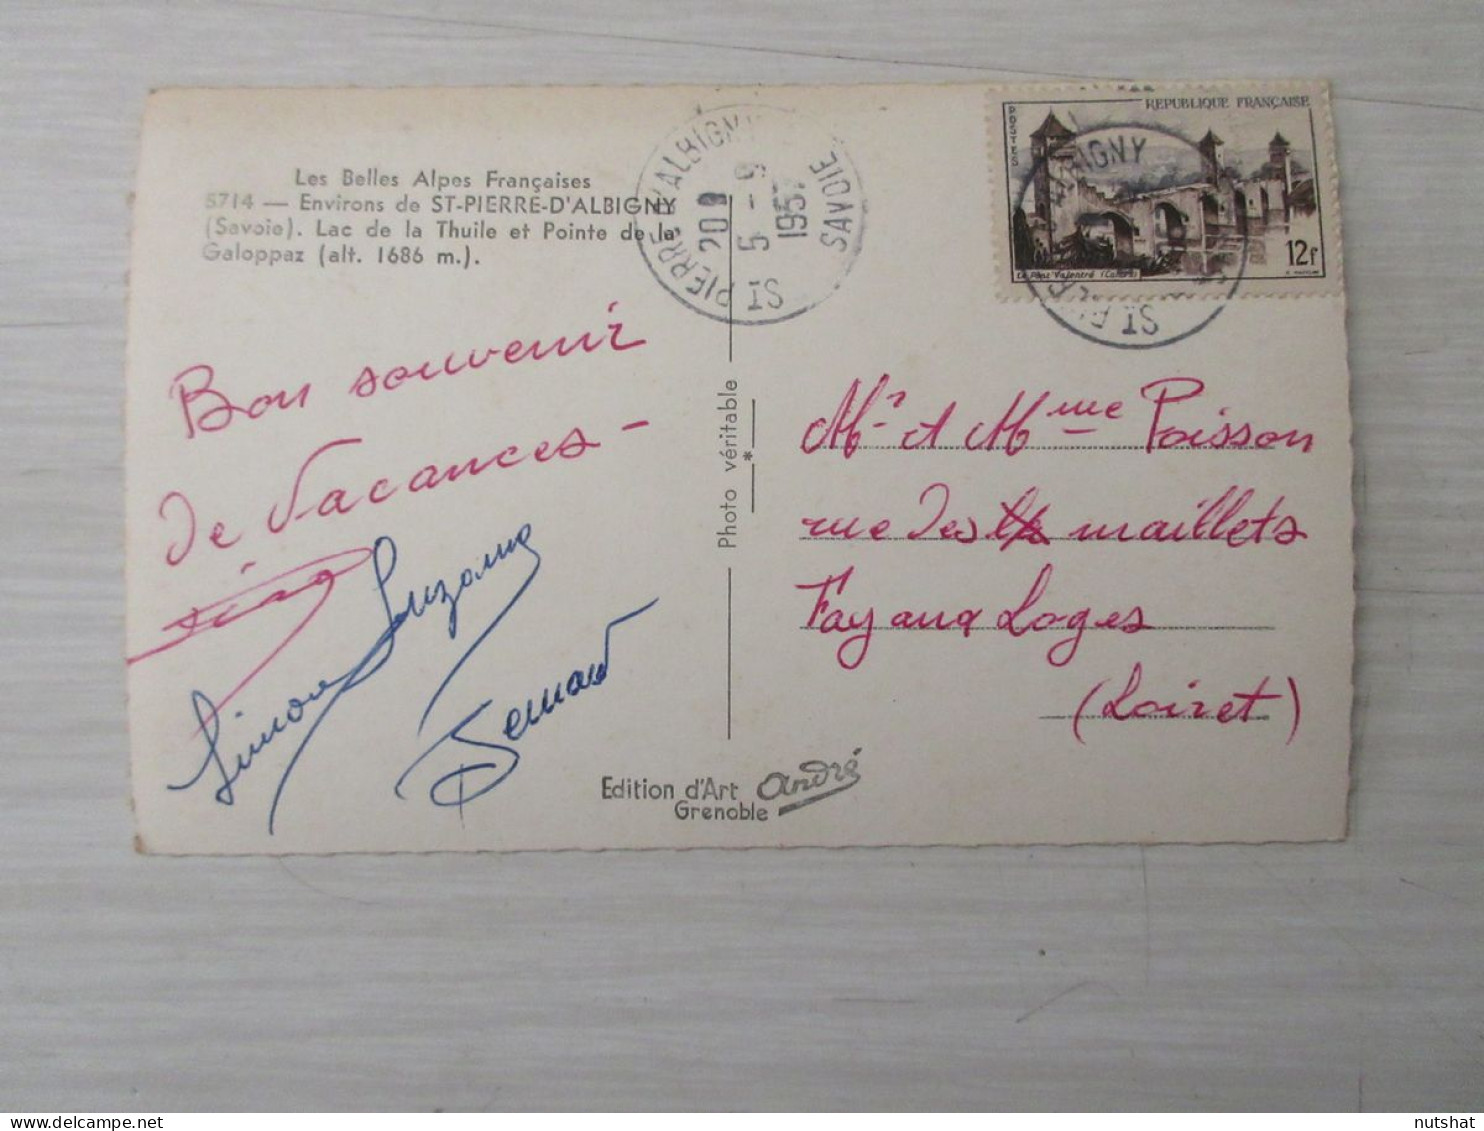 Les Belles Alpes Françaises
5714 — Environs de ST-PIERRE-D'ALBIGNY
(Savoie). Lac de la Thuile et Pointe de la
Galoppaz (alt. 1686 m.).
Bon souvenir
de Vacances -
Simone Suzanne
Bernard
Photo véritable
*
Edition d'Art André
Grenoble
ST PIERRE D'ALBIGNY
5 - 9
1957
SAVOIE
POSTES
REPUBLIQUE FRANÇAISE
Le Pont Valentré (Cahors)
12f
ALBIGNY
ST
Mr et Mme Poisson
rue des maillets
Fay aux Loges
(Loiret)
nutshat